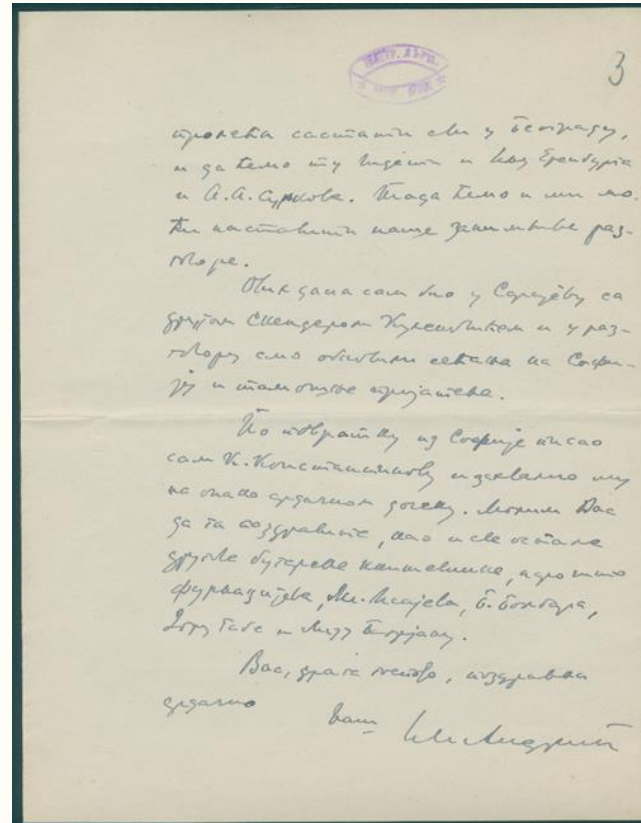 3
пролећа састати сви у Београду,
и да ћемо ту видети и Илју Еренбурга
и А.А. Суркова. Тада ћемо и ми мо-
ћи наставити наше занимљиве раз-
говоре.
Ових дана сам био у Сарајеву са
другом Скендером Куленовићем и у раз-
говору смо обновили сећања на Софи-
ју и тамошње пријатеље.
По повратку из Софије писао
сам К. Константинову и захвалио му
на онако срдачном дочеку. Молим Вас
да га поздравите, као и све остале
другове бугарске књижевнике,
Фурнаџијева, Мл. Исајева, Б. Болгара,
Дору Габе и
Вас, драги поздравља
срдачно Ваш Иво Андрић